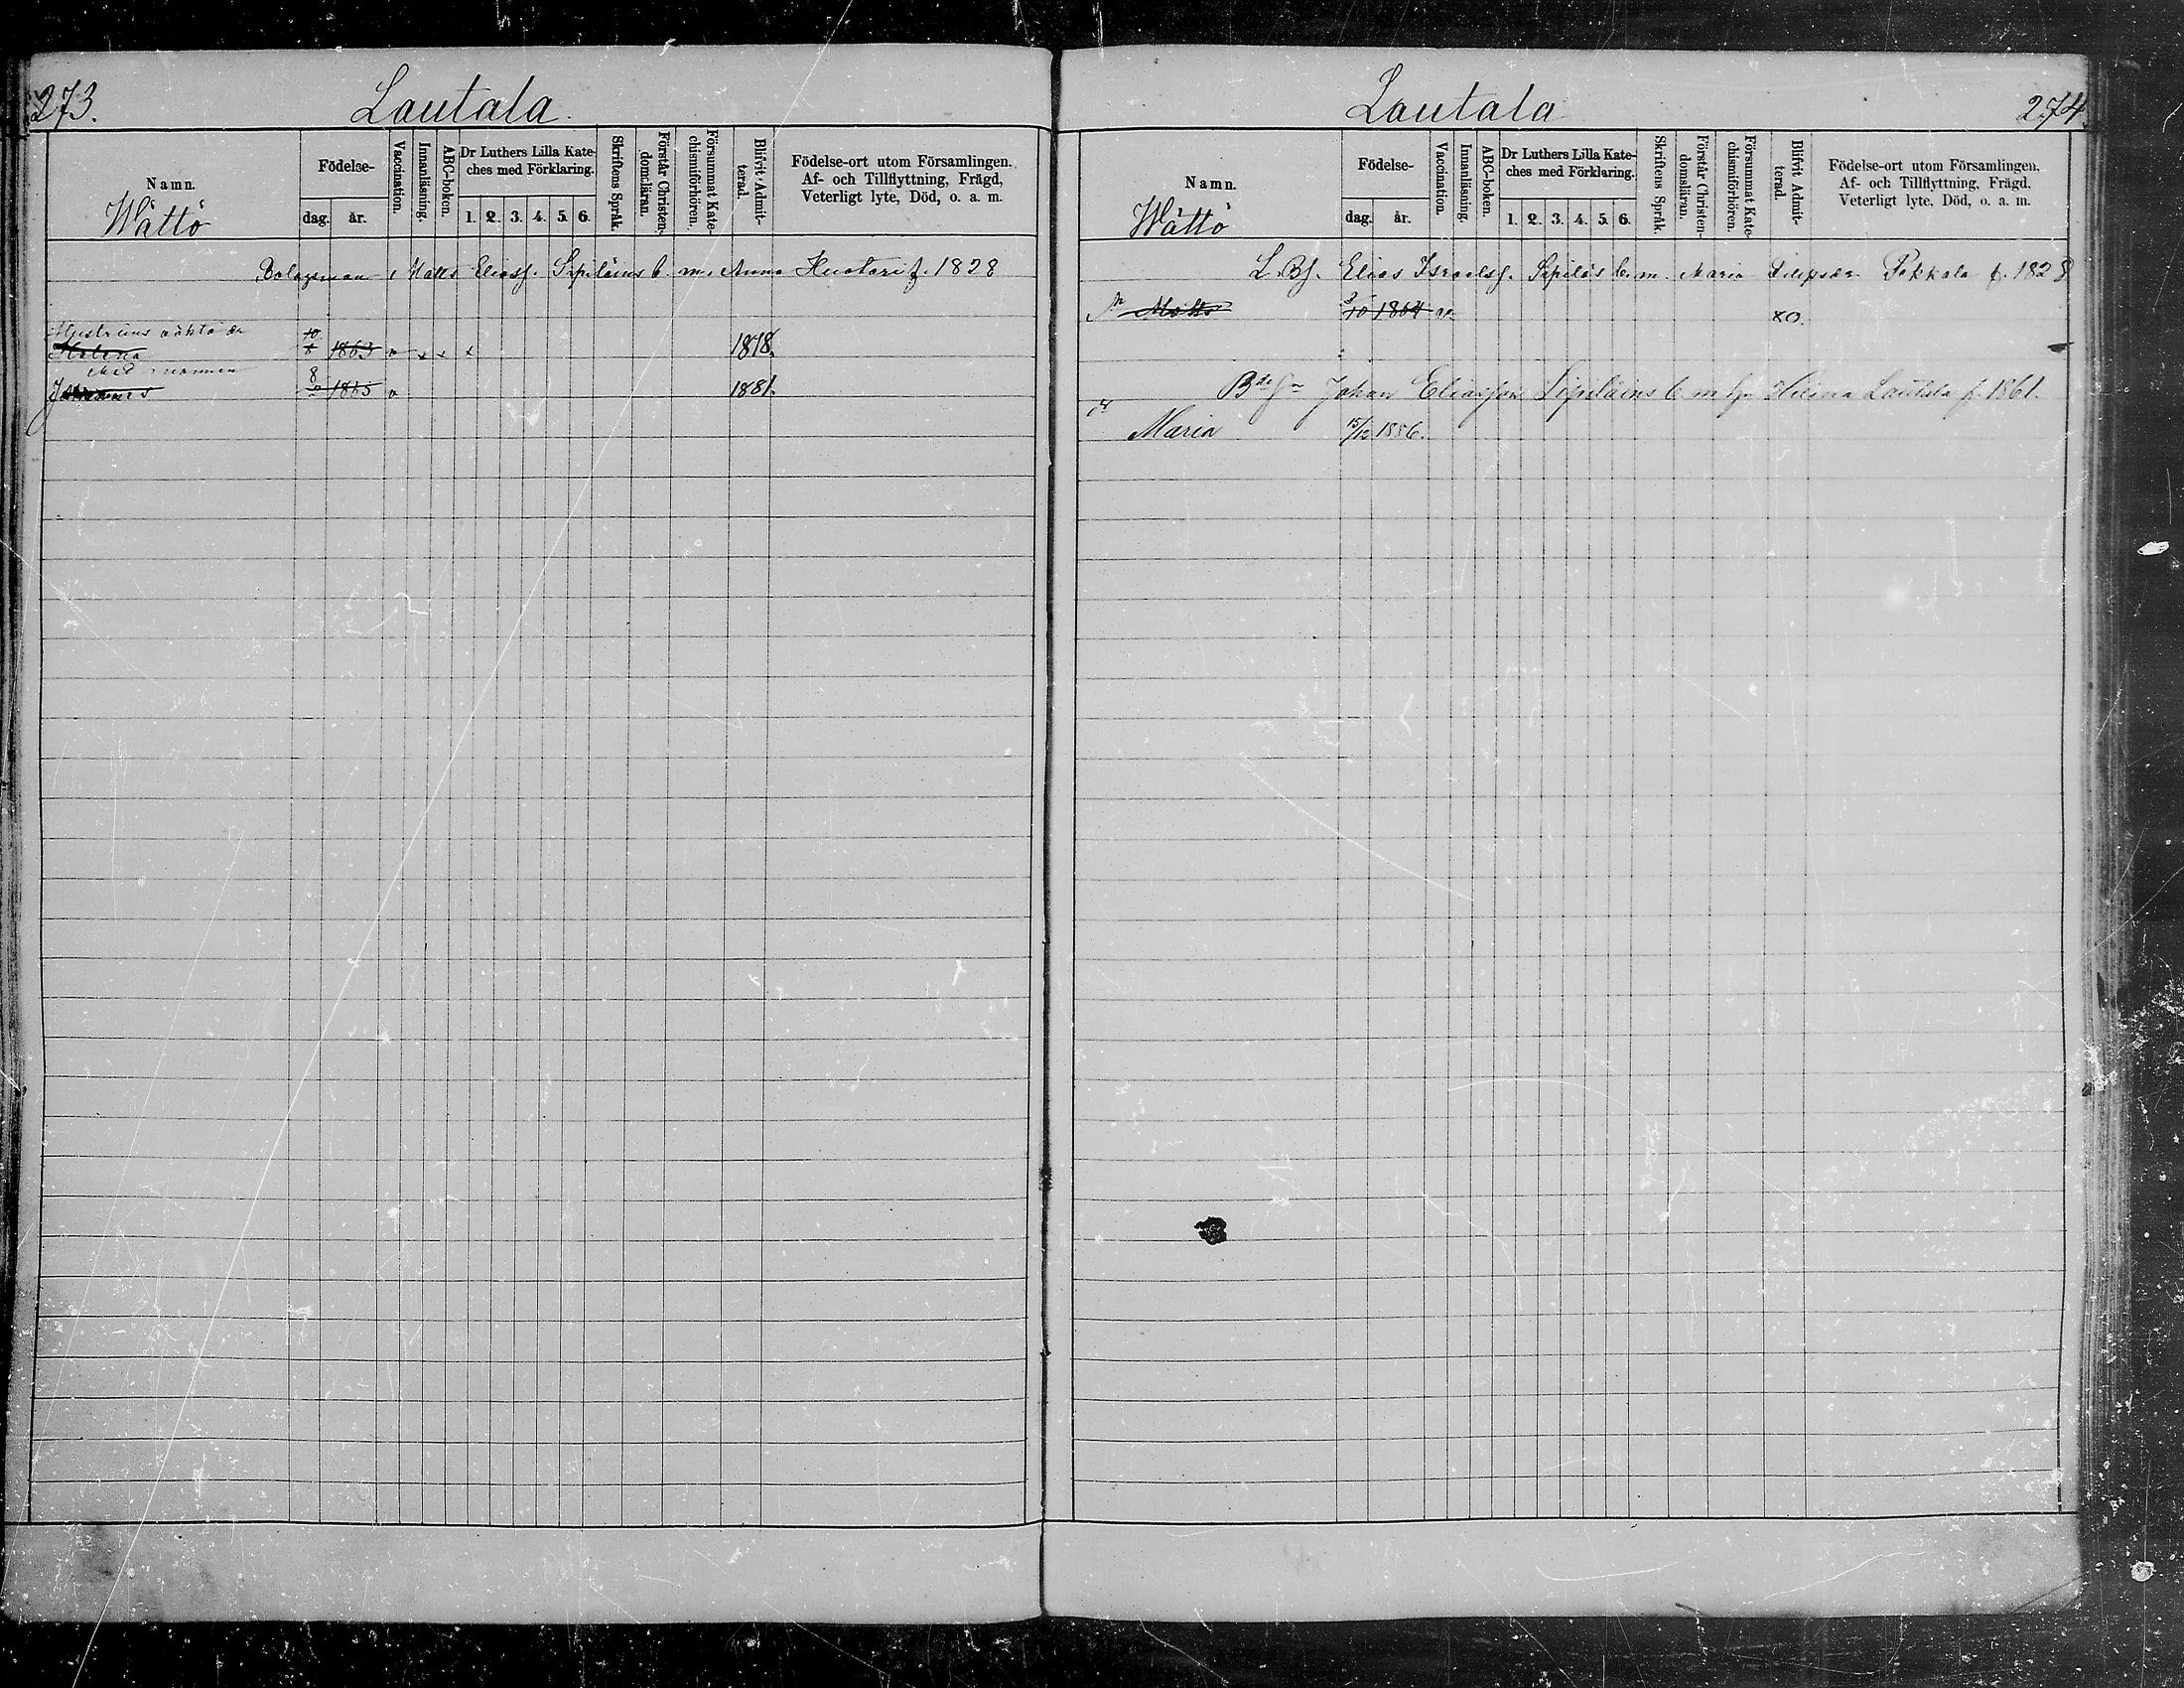 273.
Lautala
Namn.
Wättö
Födelse-
dag. år.
Vaccination.
Innanläsning.
ABC-boken.
Dr Luthers Lilla Kate-
ches med Förklaring.
1. 2. 3. 4. 5. 6.
Skriftens Språk.
Förstår Christen-
domsläran.
Försummat Kate-
chismiförhören.
Blifvit Admit-
terad.
Födelse-ort utom Församlingen.
Af- och Tillflyttning, Frägd,
Veterligt lyte, Död, o. a. m.
Bolagsman Matts Eliasf. Sipiläins b. m. Anna Huotari f. 1828
10/8 1863 v x x x 1878.
med mannen
Johannes 8/2 1865 v 1881.
Lautala
274.
Namn.
Wättö
Födelse-
dag. år.
Vaccination.
Innanläsning.
ABC-boken.
Dr Luthers Lilla Kate-
ches med Förklaring.
1. 2. 3. 4. 5. 6.
Skriftens Språk.
Förstår Christen-
domsläran.
Försummat Kate-
chismiförhören.
Blifvit Admit-
terad.
Födelse-ort utom Församlingen.
Af- och Tillflyttning, Frägd.
Veterligt lyte, Död, o. a. m.
L. Bf. Elias Israelsf. Sipiläs b. m. Maria Filipsdr Pekkala f. 1828
Matts 3/10 1864 v. 80.
Johan Eliasson Sipiläins b. m. Helena Lautala f. 1861.
Maria 15/12 1886.